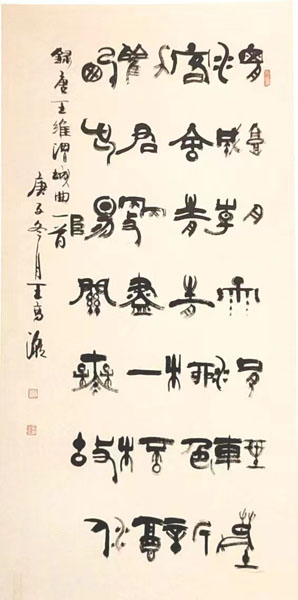 渭城朝雨浥輕塵
客舍青青柳色新
勸君更盡一杯酒
西出陽關無故人
錄唐王維渭城曲一首
庚子冬月王